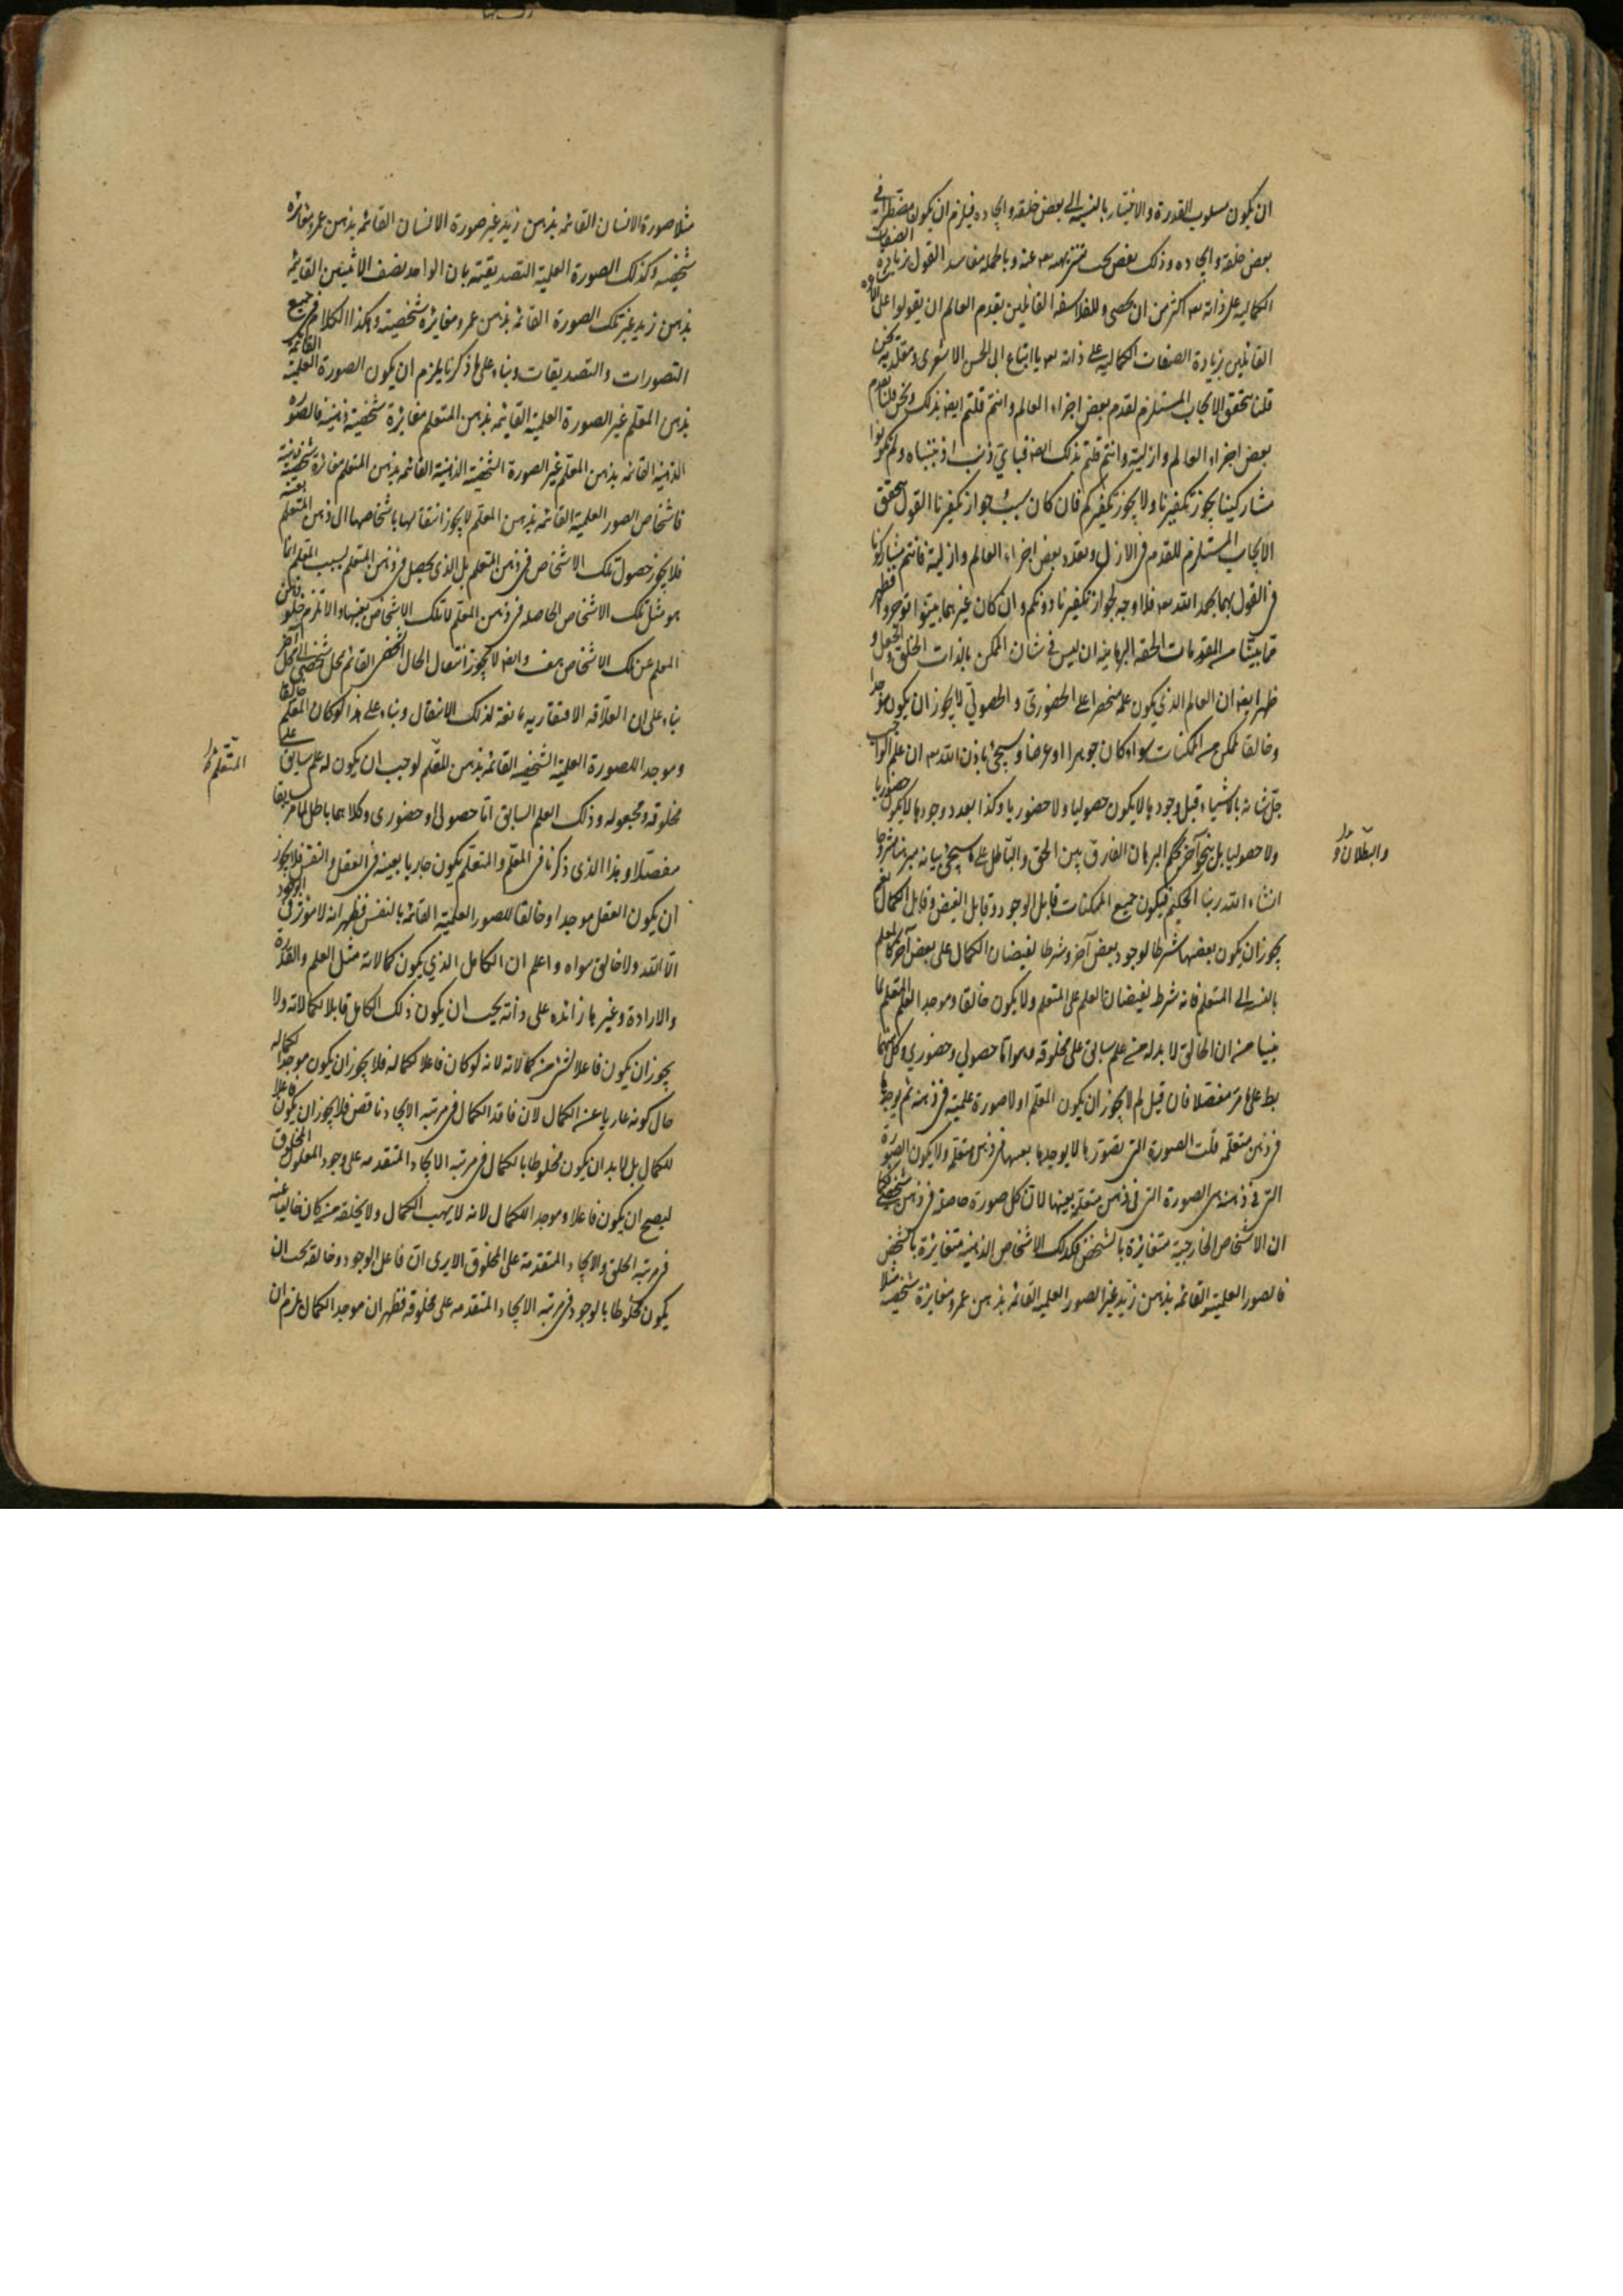 ان يكون مسلوب القدرة والاختيار بالنسبة الى بعض خلقه وايجاده فيلزم ان يكون مضطرا في
بعض خلقه وايجاده وذلك نقص يجب تنزيهه تعه عنه وبالجملة مفاسد القول بزيادة الصفات
الكمالية على ذاته تعه اكثر من ان يحصى وللفلاسفة القائلين بقدم العالم ان يقولوا على
القائلين بزيادة الصفات الكمالية على ذاته تعه يا اتباع ابى الحسن الاشعرى ومقلديه نحن
قلنا بتحقق الايجاب المستلزم لقدم بعض اجزاء العالم وانتم قلتم ايضا بذلك ونحن قلنا بقدم
بعض اجزاء العالم وازليته وانتم قلتم بذلك ايضا فباي ذنب اذنبناه ولم تكونوا
مشاركينا يجوز تكفيرنا ولا يجوز تكفيركم فان كان سبب جواز تكفيرنا القول بتحقق
الايجاب المستلزم للقدم في الازل وتعدد بعض اجزاء العالم وازليته فانتم مشاركونا
في القول بهما بحمد الله تعه فلا وجه لجواز تكفيرنا دونكم وان كان غيرهما بينوا توجروا فظهر
مما بيناه من المقدمات الحقة البرهانية ان ليس في شان الممكن بالذات الخلق والجعل و
ظهر ايضا ان العالم الذي يكون علمه منحصرا على الحضورى والحصولي لا يجوز ان يكون موجدا
وخالقا لممكن من الممكنات سواء كان جوهرا او عرضا وسيجئ باذن الله تعه ان علم الواجب
جل شانه بالاشياء قبل وجودها لا يكون حصوليا ولا حضوريا وكذا بعد وجودها لا يكون حضوريا
ولا حصوليا بل بنحو آخر بحكم البرهان الفارق بين الحق والباطل على ما سيجئ بيانه مبرهنا مشروحا
انشاء الله ربنا الحكيم فيكون جميع الممكنات قابل الوجود وقابل الفيض وقابل الكمال نعم
يجوز ان يكون بعضها شرطا لوجود بعض آخر وشرطا لفيضان الكمال على بعض آخر كالمعلم
بالنسبة الى المتعلم فانه شرط لفيضان العلم على المتعلم ولا يكون خالقا وموجدا لعلم المتعلم لما
بينا من ان الخالق لا بد له من علم سابق على مخلوقه وهو اما حصولي وحضوري وكل منهما
بط على ما مر مفصلا فان قيل لم لا يجوز ان يكون المعلم اولا صورة علمية في ذهنه ثم يوجدها
في ذهن متعلمه قلت الصورة التي تصورها لا يوجدها بعينها في ذهن متعلمه ولا يكون الصورة
التي في ذهنه هى الصورة التي في ذهن متعلمه بعينها لان كل صورة حاصلة في ذهن شخصى كما
ان الاشخاص الخارجية متغايرة بالشخص فكذلك الاشخاص الذهنية متغايرة بالشخص
فالصور العلمية القائمة بذهن زيد غير الصور العلمية القائمة بذهن عمرو مغايرة شخصية مثلا
والبطلان
مثلا صورة الانسان القائمة بذهن زيد غير صورة الانسان القائمة بذهن عمرو مغايرة
شخصية وكذلك الصورة العلمية التصديقية بان الواحد نصف الاثنين القائمة
بذهن زيد غير تلك الصورة القائمة بذهن عمرو مغايرة شخصية وهكذا الكلام في جميع
التصورات والتصديقات وبناء على ما ذكرنا يلزم ان يكون الصورة العلمية القائمة
بذهن المعلم غير الصورة العلمية القائمة بذهن المتعلم مغايرة شخصية ذهنية فالصورة
الذهنية القائمة بذهن المعلم غير الصورة الشخصية الذهنية القائمة بذهن المتعلم مغايرة شخصية ذهنية
فاشخاص الصور العلمية القائمة بذهن المعلم لا يجوز انتقالها باشخاصها الى ذهن المتعلم
فلا يجوز حصول تلك الاشخاص في ذهن المتعلم بل الذى يحصل في ذهن المتعلم بسبب المتعلم انما
هو مثل تلك الاشخاص الحاصلة في ذهن المعلم لا تلك الاشخاص بعينها والا يلزم خلو ذهن
المعلم عن تلك الاشخاص هف وايضا لا يجوز انتقال الحال الشخصى القائم بمحل شخصى الى محل آخر
بناء على ان العلاقة الافتقارية مانعة لذلك الانتقال وبناء على هذا لو كان المعلم خالقا
وموجدا للصورة العلمية الشخصية القائمة بذهن المتعلم لوجب ان يكون له علم سابق على
مخلوقه ومجعوله وذلك العلم السابق اما حصولى او حضورى وكلاهما باطل لما مر سابقا
مفصلا وهذا الذى ذكرنا في المعلم والمتعلم يكون جاريا بعينه في العقل والنفس فلا يجوز
ان يكون العقل موجدا وخالقا للصور العلمية القائمة بالنفس فظهر انه لا مؤثر في الوجود
الا الله ولا خالق سواه واعلم ان الكامل الذي يكون كمالاته مثل العلم والقدرة
والارادة وغيرها زائدة على ذاته يجب ان يكون ذلك الكامل قابلا لكمالاته ولا
يجوز ان يكون فاعلا لشئ من كمالاته لانه لو كان فاعلا لكماله فلا يجوز ان يكون موجدا لكماله
حال كونه عاريا عن الكمال لان فاقد الكمال في مرتبة الايجاد ناقص فلا يجوز ان يكون فاعلا
للكمال بل لا بد ان يكون مخلوطا بالكمال في مرتبة الايجاد المتقدمة على وجود المعلول المخلوق
ليصح ان يكون فاعلا وموجدا للكمال لانه لا يهب الكمال ولا يخلقه من كان خاليا عنه
في مرتبة الخلق والايجاد المتقدمة على المخلوق الا يرى ان فاعل الوجود وخالقه يجب ان
يكون مخلوطا بالوجود في مرتبة الايجاد المتقدمة على مخلوقه فظهر ان موجد الكمال يلزم ان
المتعلم